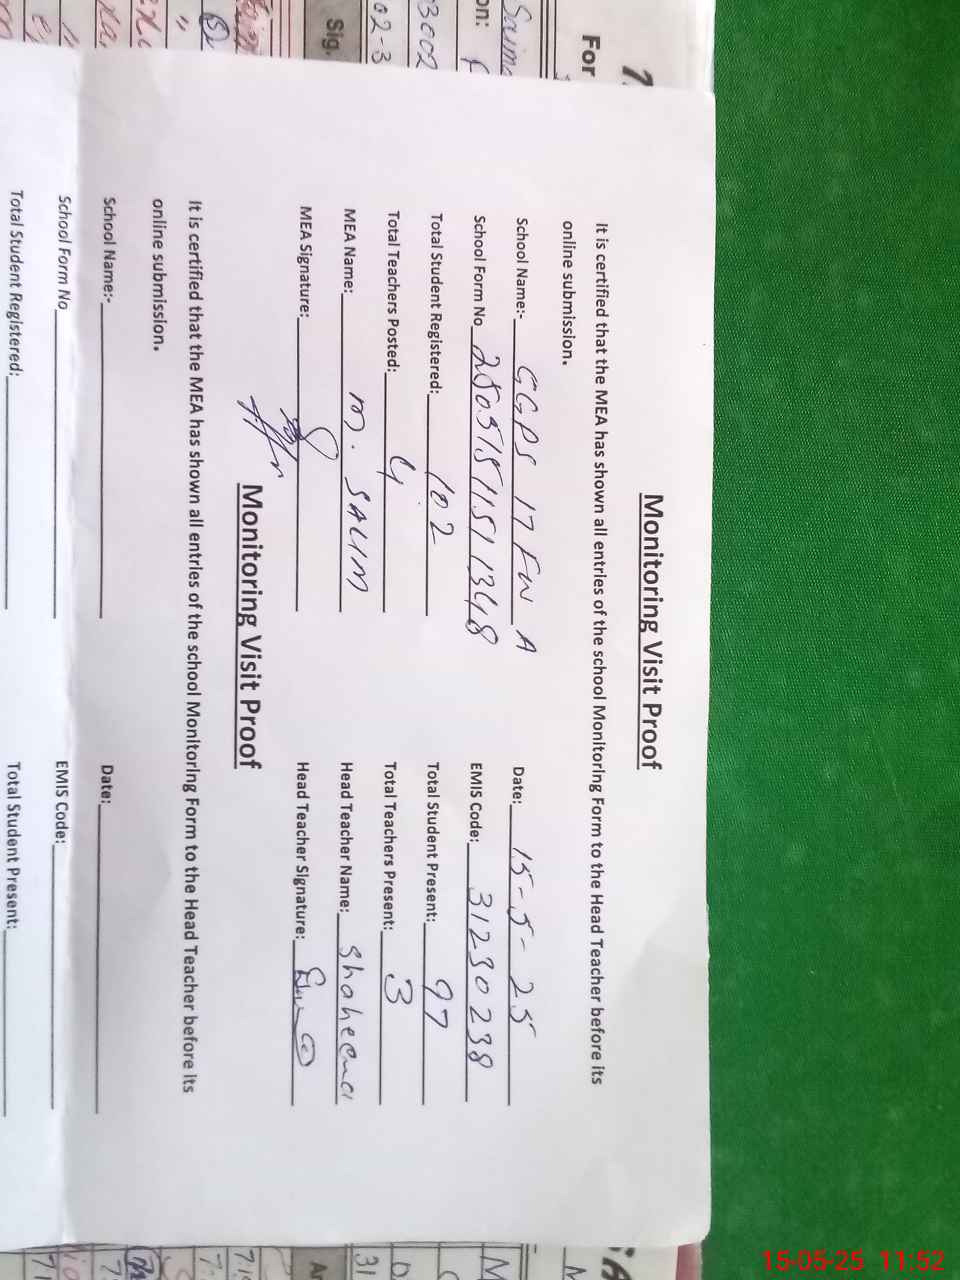 Monitoring Visit Proof
It is certified that the MEA has shown all entries of the school Monitoring Form to the Head Teacher before its
online submission.
School Name:- GGPS 17 FW A Date: 15-5-25
School Form No EMIS Code: 31230238
Total Student Registered: 102 Total Student Present: 97
Total Teachers Posted: 4 Total Teachers Present: 3
MEA Name: M. SALIM Head Teacher Name: Shaheena
MEA Signature: Head Teacher Signature:
Monitoring Visit Proof
It is certified that the MEA has shown all entries of the school Monitoring Form to the Head Teacher before its
online submission.
School Name:- Date:
School Form No EMIS Code:
Total Student Registered: Total Student Present:
For
Sig.
15-05-25 11:52